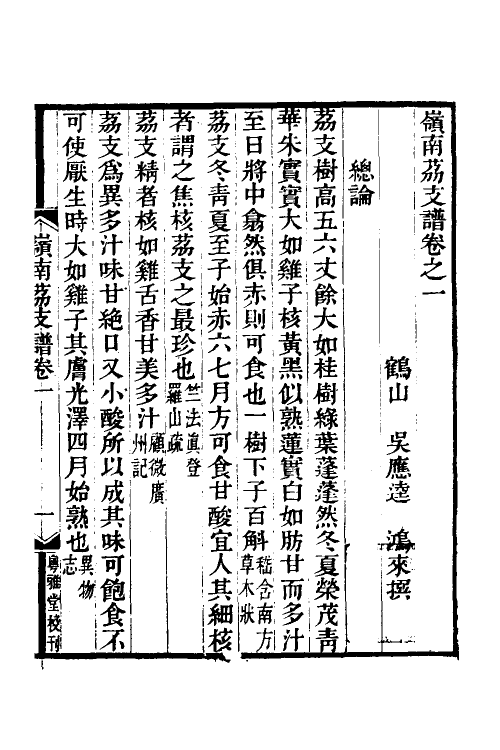 嶺南荔支譜卷之一
鶴山　吳應逵　鴻來撰
總論
荔支樹高五六丈餘大如桂樹綠葉蓬蓬然冬夏榮茂靑
華朱實實大如雞子核黃黑似熟蓮實白如肪甘而多汁
至日將中翕然俱赤則可食也一樹下子百斛嵇含南方草木狀
荔支冬靑夏至子始赤六七月方可食甘酸宜人其細核
者謂之焦核荔支之最珍也竺法眞登羅山疏
荔支精者核如雞舌香甘美多汁顧微廣州記
荔支爲異多汁味甘絕口又小酸所以成其味可飽食不
可使厭生時大如雞子其膚光澤四月始熟也異物志
嶺南荔支譜卷一　一　粵雅堂校刊